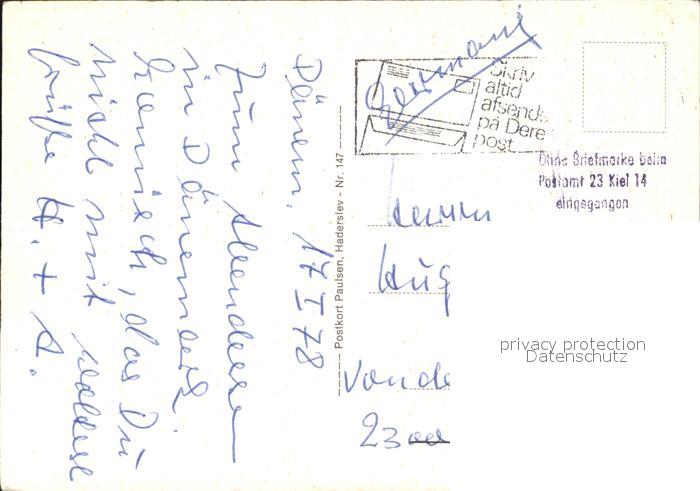 Dänem. 17 I 78
Zum Abendessen
in Dänemark.
Komisch, das Du
nicht mit wolltest
Grüße H. + A.
Postkort Paulsen, Haderslev - Nr. 147
Germani
Skriv
altid
afsende
på Dere
post
Ohne Briefmarke beim
Postamt 23 Kiel 14
eingegangen
Herrn
Hug
Vonde
2300
privacy protection
Datenschutz